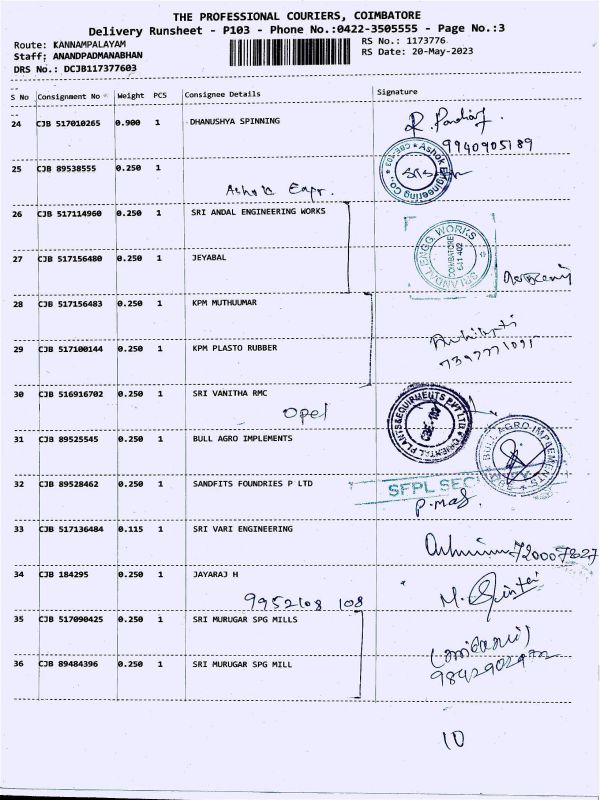 THE PROFESSIONAL COURIERS, COIMBATORE
Delivery Runsheet - P103 - Phone No.:0422-3505555 - Page No.:3
Route: KANNAMPALAYAM
RS No.: 1173776
Staff: ANANDPADMANABHAN
RS Date: 20-May-2023
DRS No.: DCJB117377603
S No Consignment No Weight PCS Consignee Details Signature
24 CJB 517010265 0.900 1 DHANUSHYA SPINNING
9940905189
25 CJB 89538555 0.250 1
Ashok Engg Co.
Ashok Engineering Co., CBE-103
26 CJB 517114960 0.250 1 SRI ANDAL ENGINEERING WORKS
SRI ANDAL ENGG. WORKS
COIMBATORE
641 402
27 CJB 517156480 0.250 1 JEYABAL
28 CJB 517156483 0.250 1 KPM MUTHUUMAR
29 CJB 517100144 0.250 1 KPM PLASTO RUBBER
30 CJB 516916702 0.250 1 SRI VANITHA RMC
Opel
ORIENTAL PLANTS & EQUIRMENTS PVT LTD.
31 CJB 89525545 0.250 1 BULL AGRO IMPLEMENTS
BULL AGRO IMPLEMENTS
32 CJB 89528462 0.250 1 SANDFITS FOUNDRIES P LTD
SFPL SEC
33 CJB 517136484 0.115 1 SRI VARI ENGINEERING
720007827
34 CJB 184295 0.250 1 JAYARAJ H
9952108 108
35 CJB 517090425 0.250 1 SRI MURUGAR SPG MILLS
36 CJB 89484396 0.250 1 SRI MURUGAR SPG MILL
10